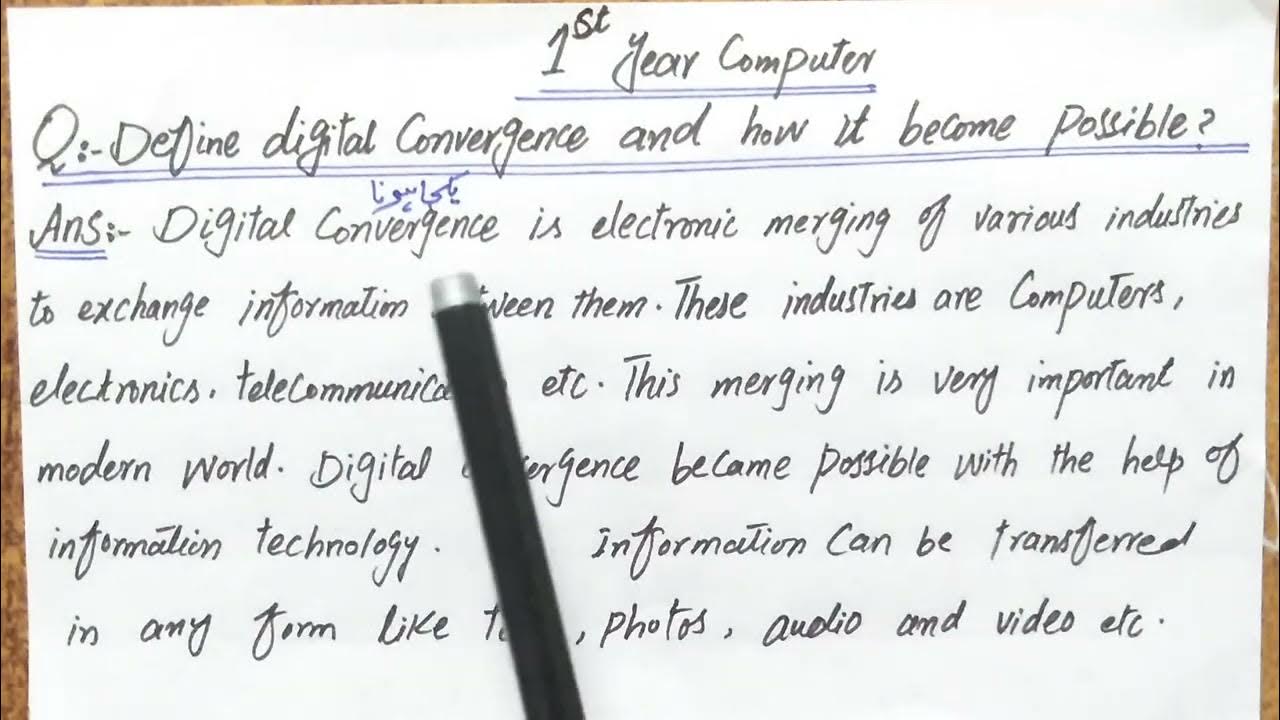 1st Year Computer
Q:- Define digital Convergence and how it become possible?
یکجا ہونا
Ans:- Digital Convergence is electronic merging of various industries
to exchange information between them. These industries are Computers,
electronics, telecommunica etc. This merging is very important in
modern world. Digital Convergence became possible with the help of
information technology. Information can be transferred
in any form like , photos, audio and video etc.